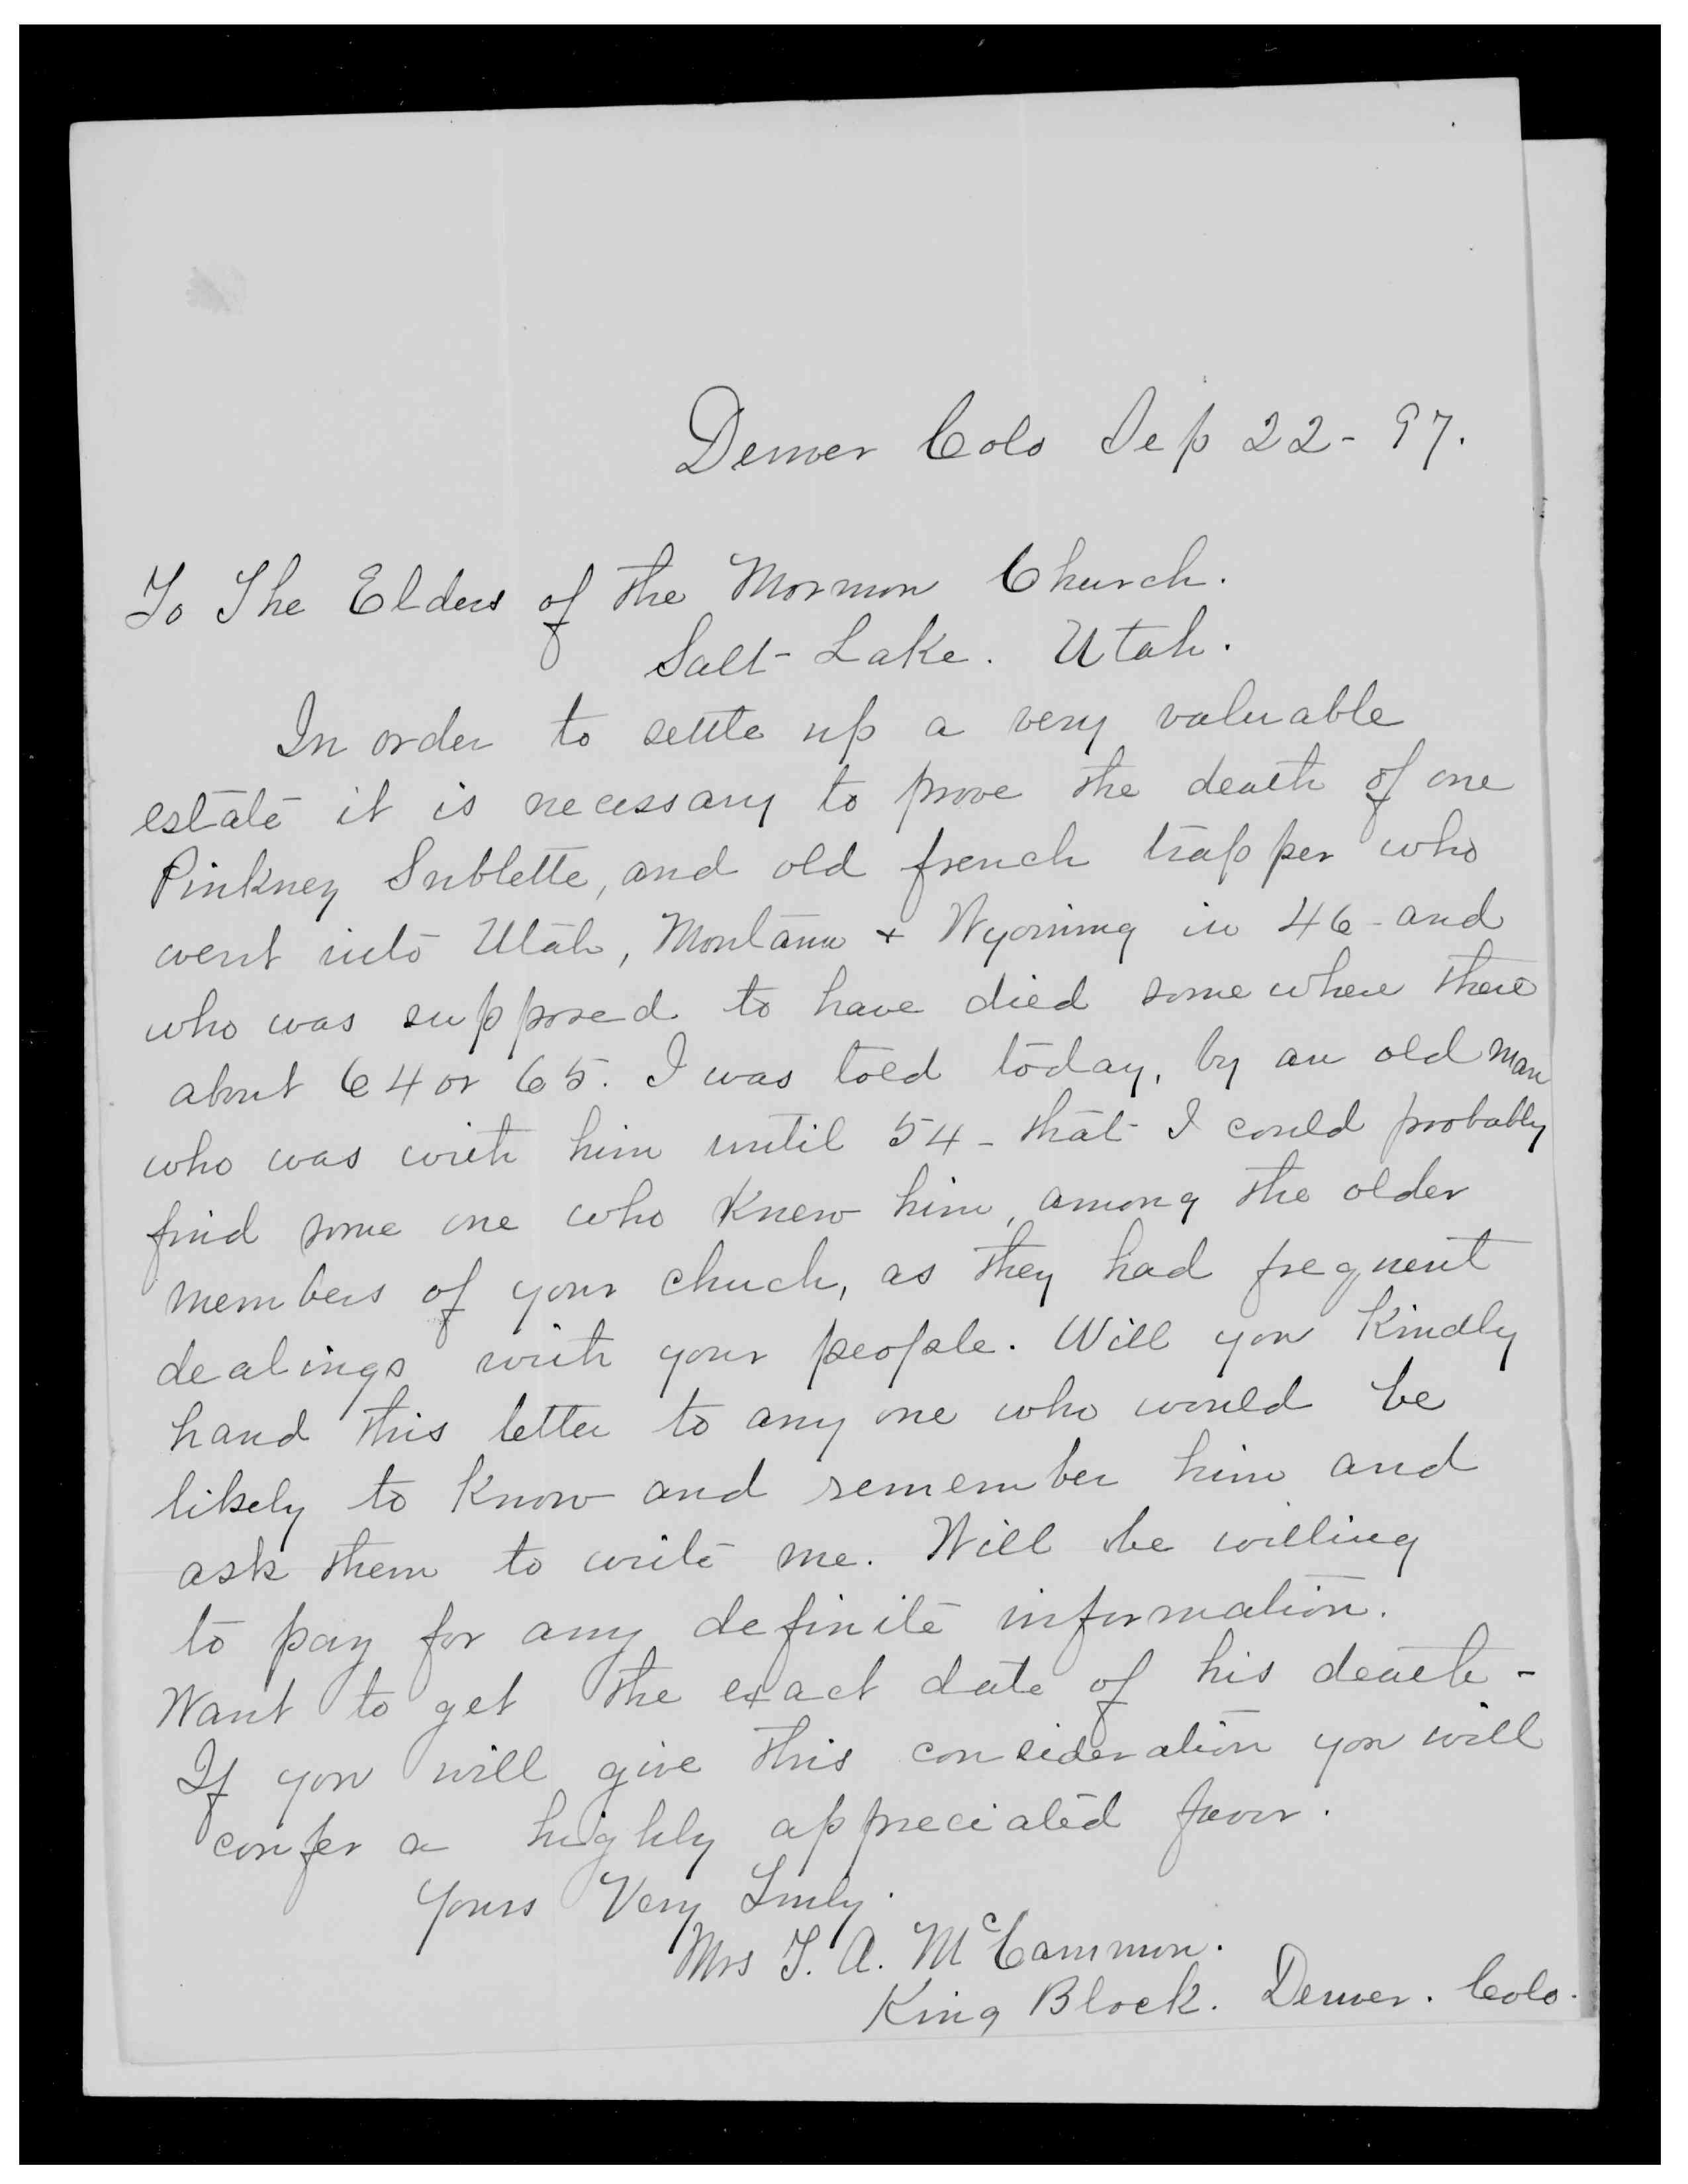 Denver Colo Sep 22 - 97.
To The Elders of the Mormon Church.
Salt-Lake. Utah.
In order to settle up a very valuable
estate it is necessary to prove the death of one
Pinkney Sublette, and old french trapper who
went into Utah, Montana + Wyoming in 46 - and
who was supposed to have died some where there
about 64 or 65. I was told today, by an old man
who was with him until 54 - that I could probably
find some one who knew him, among the older
members of your chuch, as they had frequent
dealings with your people. Will you Kindly
hand this letter to any one who would be
likely to Know and remember him and
ask them to write me. Will be willing
to pay for any definite information.
Want to get the exact date of his death -
If you will give this consideration you will
confer a highly appreciated favor.
Yours Very Truly.
Mrs T. A. McCammon.
King Block. Denver. Colo.